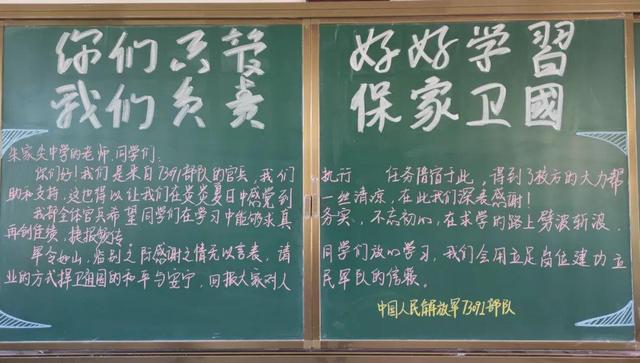 你们只管 好好学習
我们负责 保家卫國
朱家尖中学的老师、同学们:
你们好!我们是来自73091部队的官兵,我们执行 任务借宿于此,得到了校方的大力帮
助和支持,这也得以让我们在炎炎夏日中感觉到一丝清凉,在此我们深表感谢!
我部全体官兵希望同学们在学习中能够求真务实,不忘初心,在求学的路上劈波斩浪,
再创佳绩,捷报频传
军令如山,临别之际感谢之情无以言表,请同学们放心学习,我们会用立足岗位建功立
业的方式捍卫祖国的和平与安宁,回报大家对人民军队的信赖。
中国人民解放军73091部队